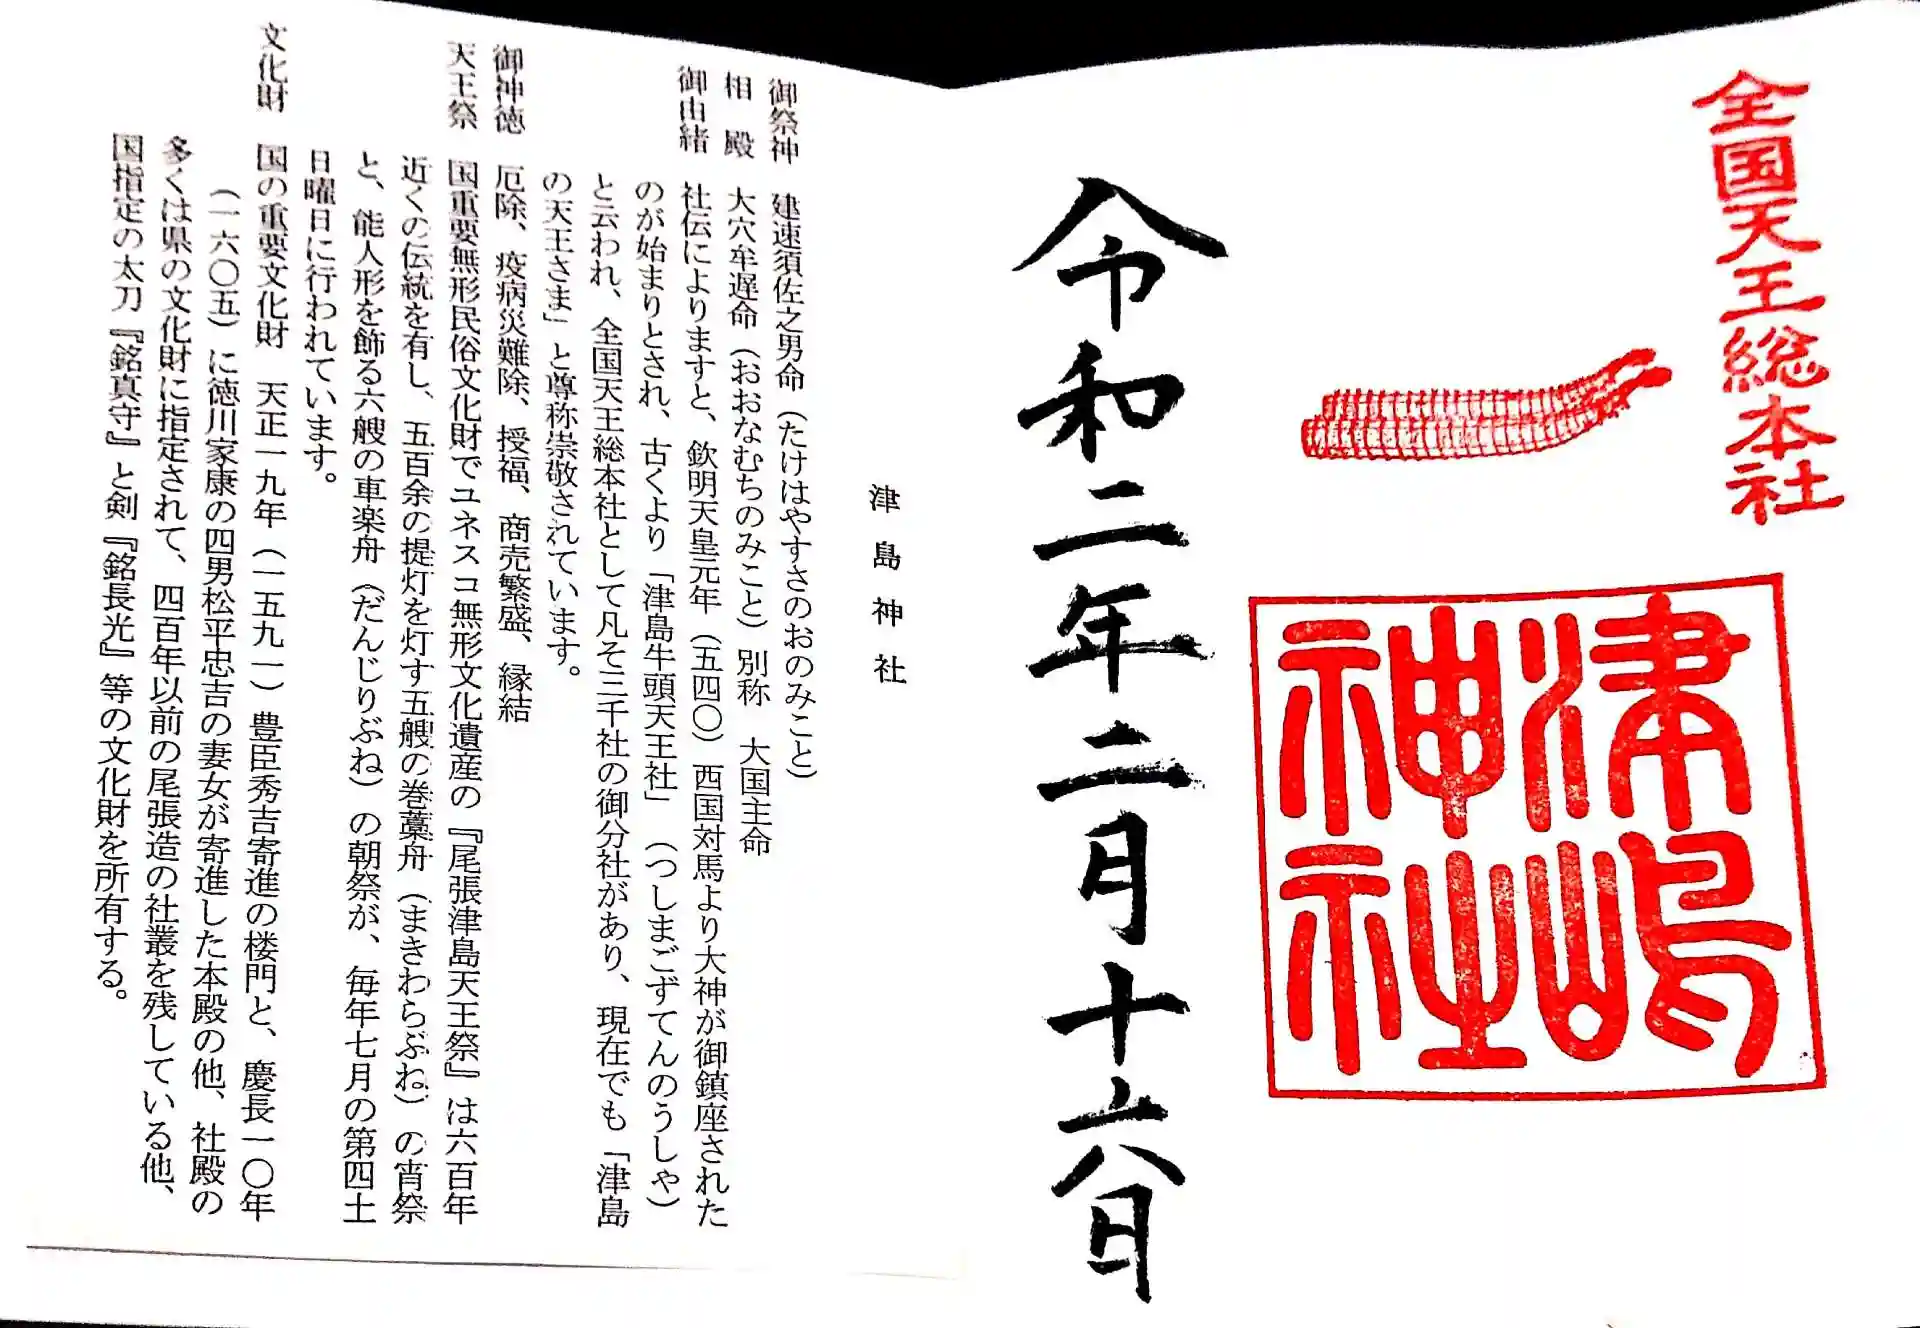 全国天王総本社
津嶋神社
令和二年二月十六日
津島神社
御祭神 建速須佐之男命（たけはやすさのおのみこと）
相殿 大穴牟遅命（おおなむちのみこと）別称 大国主命
御由緒 社伝によりますと、欽明天皇元年（五四〇）西国対馬より大神が御鎮座された
のが始まりとされ、古くより「津島牛頭天王社」（つしまごずてんのうしゃ）
と云われ、全国天王総本社として凡そ三千社の御分社があり、現在でも「津島
の天王さま」と尊称崇敬されています。
御神徳 厄除、疫病災難除、授福、商売繁盛、縁結
天王祭 国重要無形民俗文化財でユネスコ無形文化遺産の『尾張津島天王祭』は六百年
近くの伝統を有し、五百余の提灯を灯す五艘の巻藁舟（まきわらぶね）の宵祭
と、能人形を飾る六艘の車楽舟（だんじりぶね）の朝祭が、毎年七月の第四土
日曜日に行われています。
文化財 国の重要文化財 天正一九年（一五九一）豊臣秀吉寄進の楼門と、慶長一〇年
（一六〇五）に徳川家康の四男松平忠吉の妻女が寄進した本殿の他、社殿の
多くは県の文化財に指定されて、四百年以前の尾張造の社叢を残している他、
国指定の太刀『銘真守』と剣『銘長光』等の文化財を所有する。